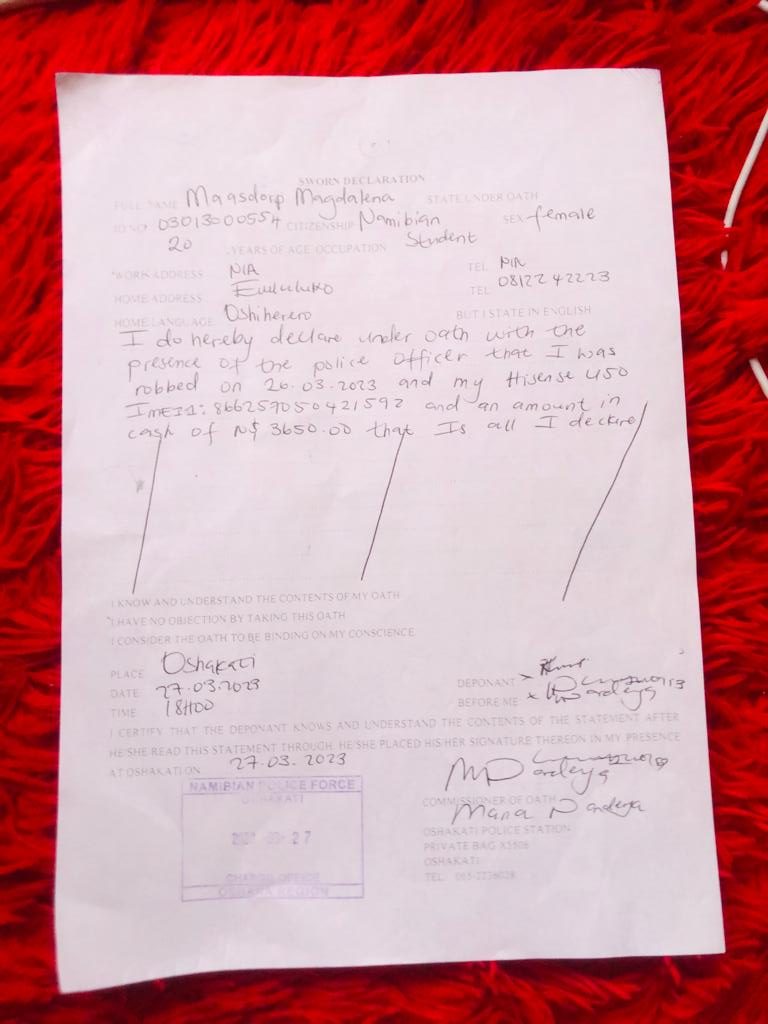 SWORN DECLARATION
FULL NAME Maasdorp Magdalena STATE UNDER OATH
ID NO 03013000554 CITIZENSHIP Namibian SEX female
20 YEARS OF AGE OCCUPATION Student
WORK ADDRESS N/A TEL N/A
HOME ADDRESS TEL 0812242223
HOME LANGUAGE Oshiherero BUT I STATE IN ENGLISH
I do hereby declare under oath with the
presence of the police officer that I was
robbed on 26.03.2023 and my Hisense U50
IMEI1: 866259050421592 and an amount in
cash of N$ 3650.00 that Is all I declare
I KNOW AND UNDERSTAND THE CONTENTS OF MY OATH
I HAVE NO OBJECTION BY TAKING THIS OATH
I CONSIDER THE OATH TO BE BINDING ON MY CONSCIENCE
PLACE Oshakati
DEPONANT
DATE 27.03.2023
BEFORE ME
TIME 18H00
I CERTIFY THAT THE DEPONANT KNOWS AND UNDERSTAND THE CONTENTS OF THE STATEMENT AFTER
HE/SHE READ THIS STATEMENT THROUGH. HE/SHE PLACED HIS/HER SIGNATURE THEREON IN MY PRESENCE
AT OSHAKATI ON 27.03.2023
NAMIBIAN POLICE FORCE
OSHAKATI
27
CHARGE OFFICE
OSHANA REGION
COMMISSIONER OF OATH
OSHAKATI POLICE STATION
PRIVATE BAG X5506
OSHAKATI
TEL 065-2236028